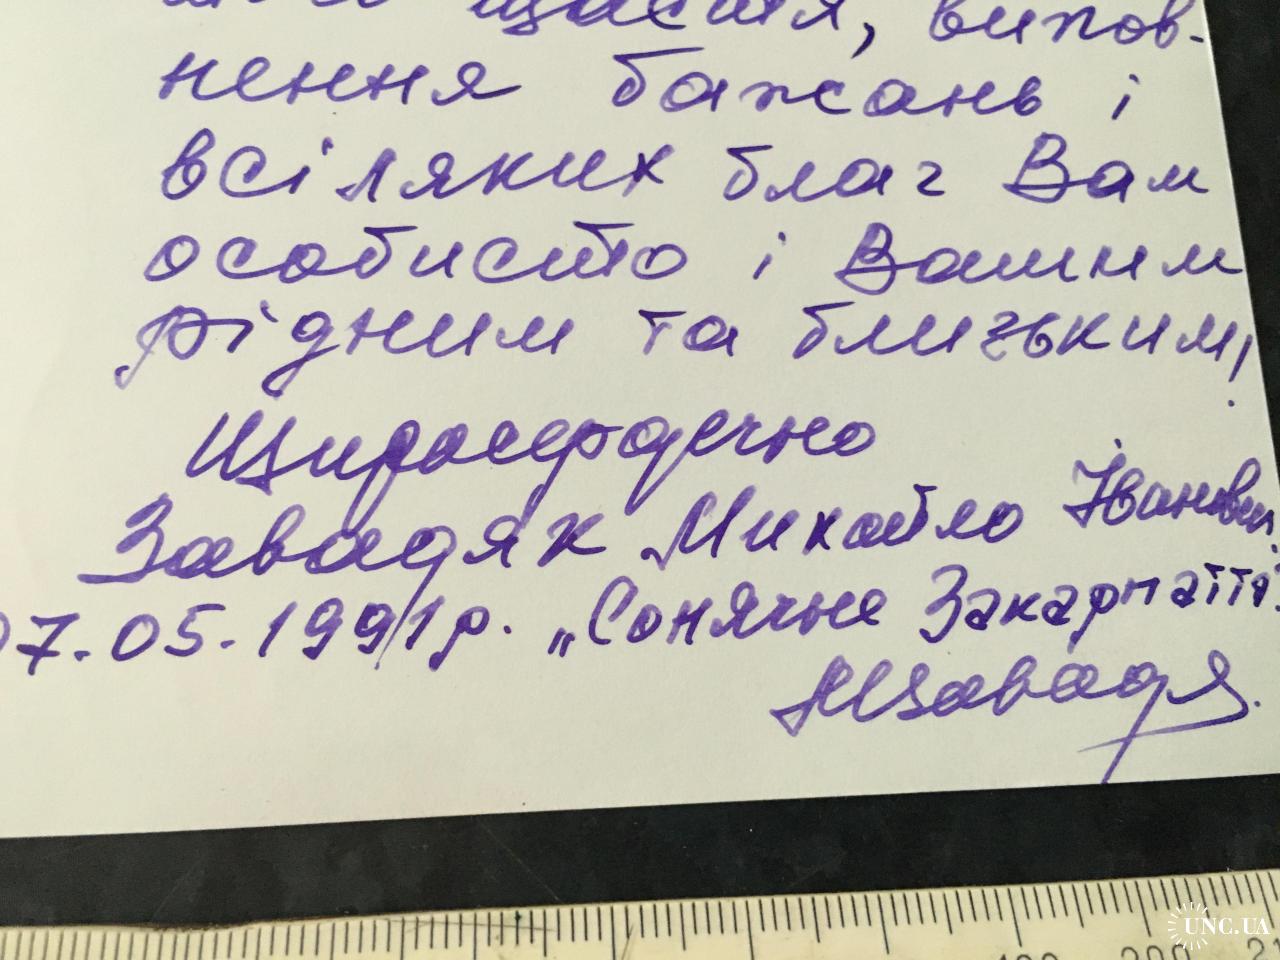 щастя, випов-
нення бажань і
всіляких благ Вам
особисто і Вашим
рідним та близьким!
Щиросердечно
Завадяк Михайло Іванович
07.05.1991р. „Сонячне Закарпаття"
МЗавадя.
UNC.UA